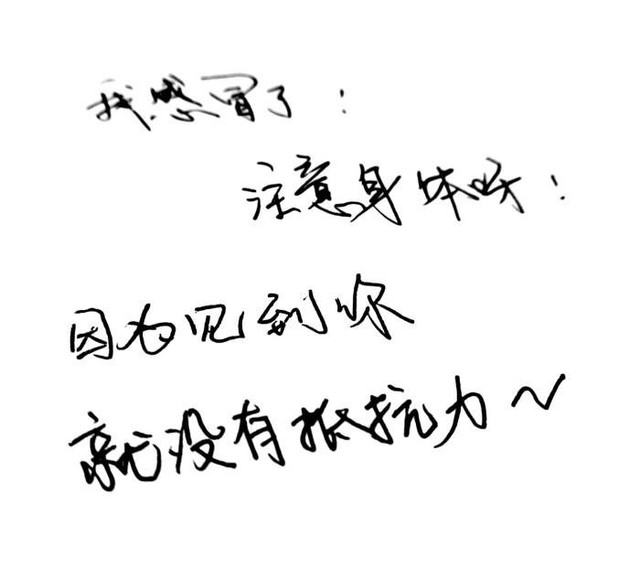 我感冒了!
注意身体呀!
因为见到你
就没有抵抗力~